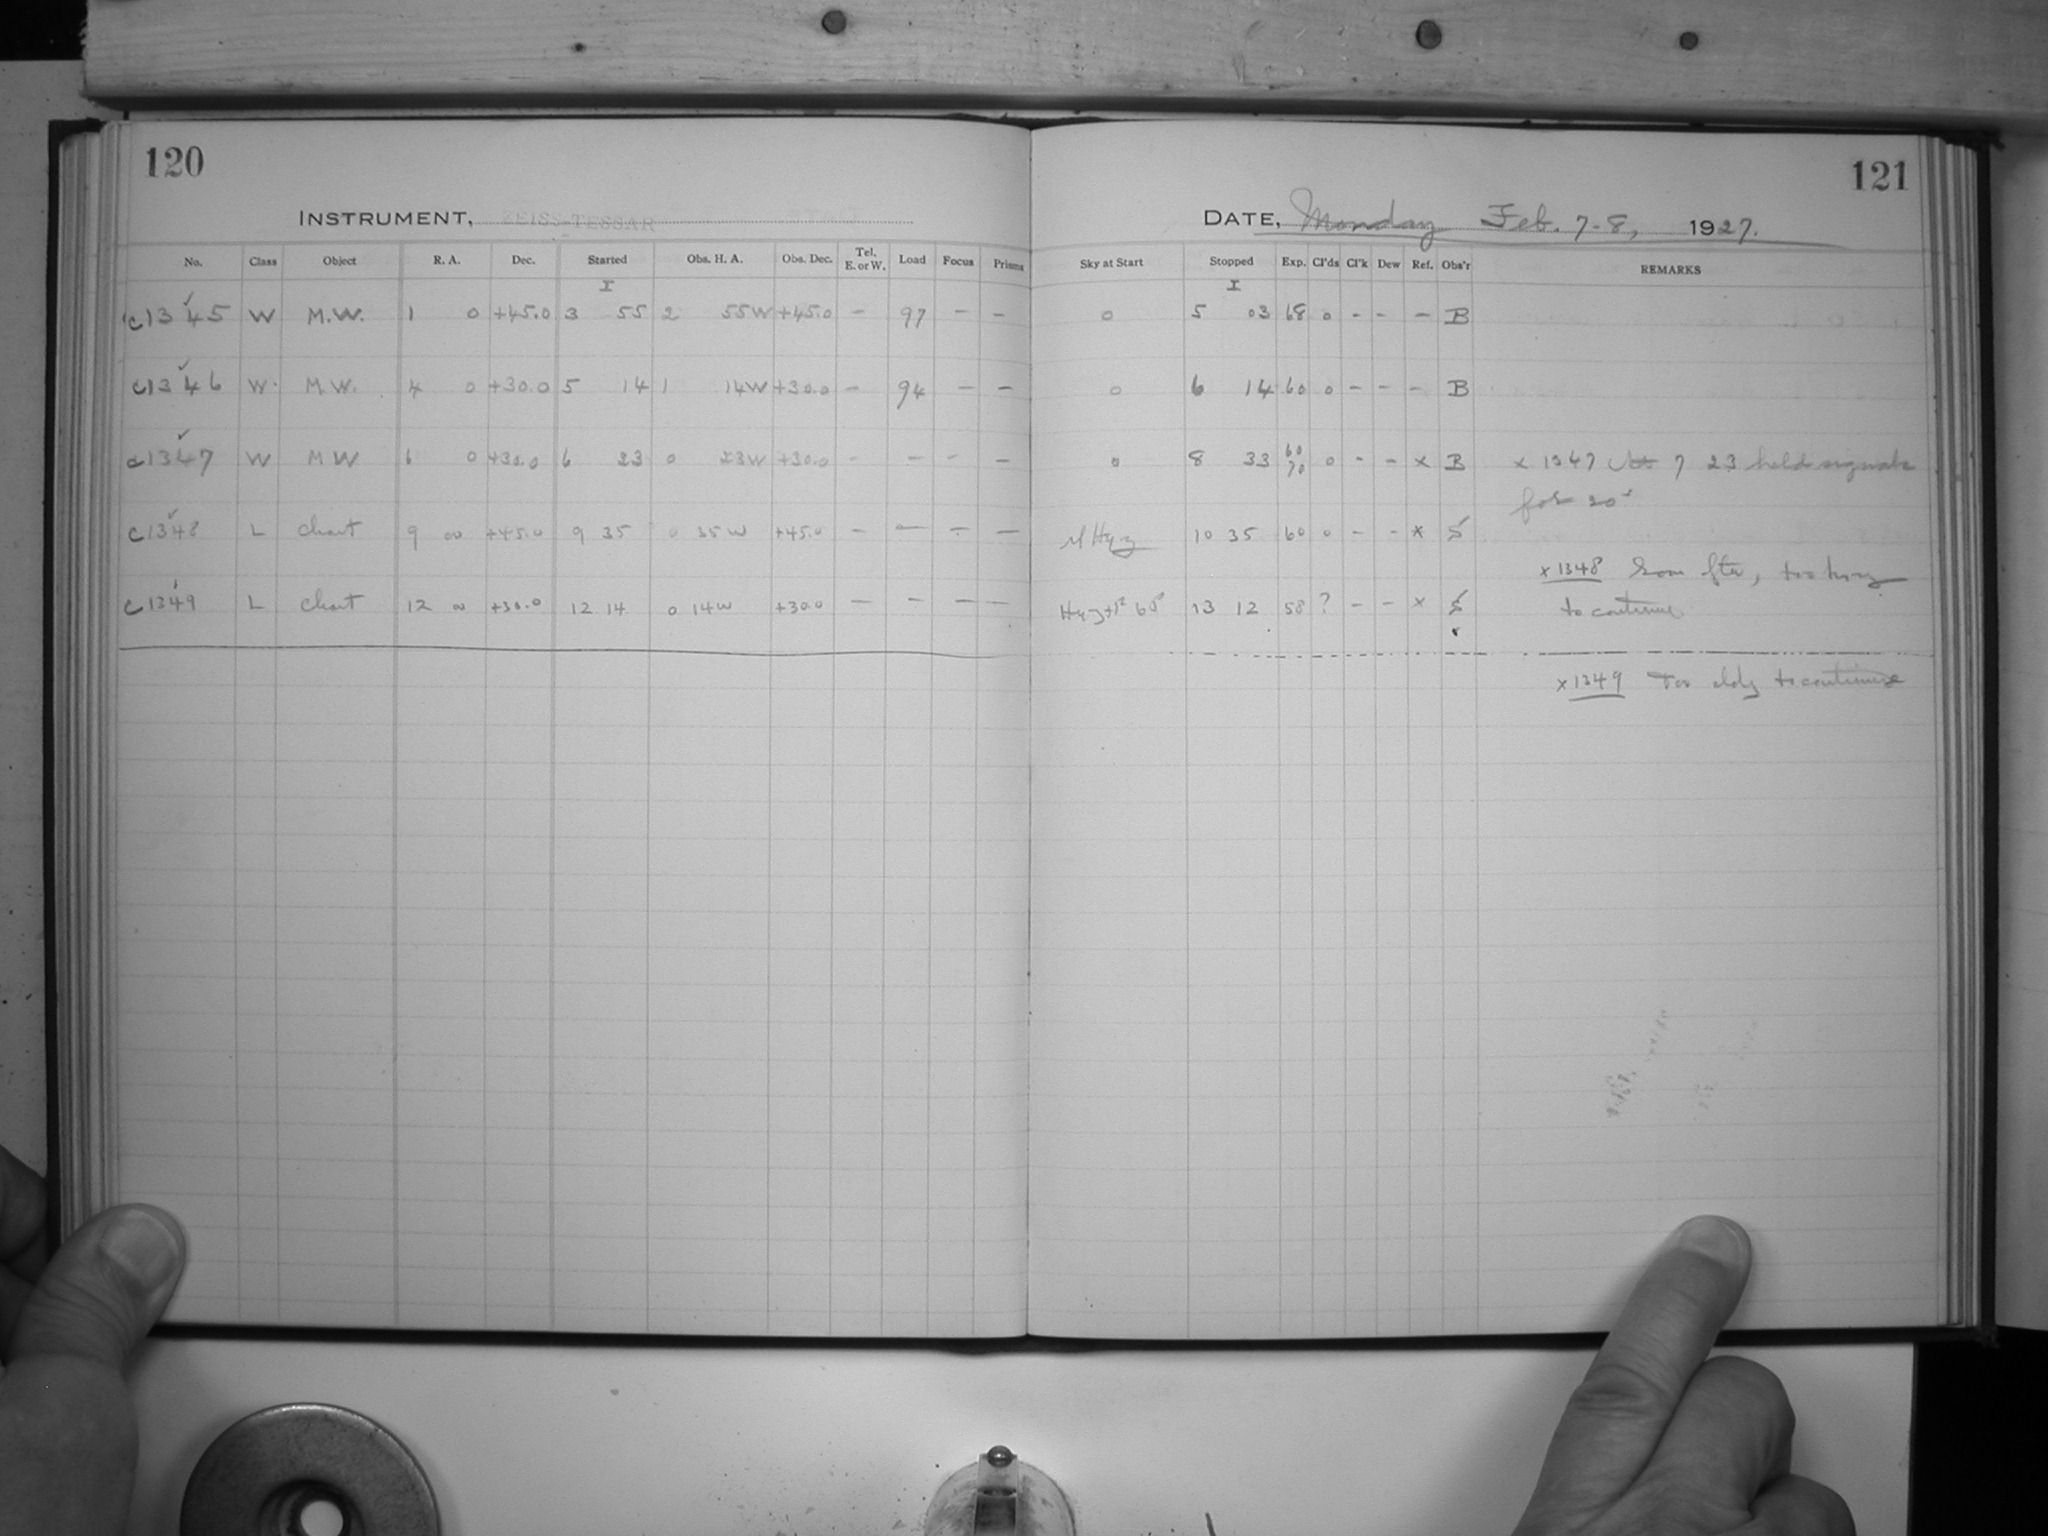 120
121
INSTRUMENT, ZEISS-TESSAR
DATE, Monday Feb. 7-8, 1927.
No. Class Object R. A. Dec. Started Obs. H. A. Obs. Dec. Tel. E. or W. Load Focus Prisms Sky at Start Stopped Exp. Cl'ds Cl'k Dew Ref. Obs'r REMARKS
I I
c1345 W M.W. 1 0 +45.0 3 55 2 55W +45.0 - 97 - - 0 5 03 68 0 - - - B
c1346 W. M.W. 4 0 +30.0 5 14 1 14W +30.0 - 94 - - 0 6 14 60 0 - - - B
c1347 W M W 6 0 +30.0 6 23 0 23W +30.0 - - - - 0 8 33 60 70 0 - - x B x 1347 7 23 held signals
for 20
c1348 L chart 9 00 +45.0 9 35 0 35W +45.0 - - - - 10 35 60 0 - - x S
x 1348 too hazy
to continue
c1349 L chart 12 00 +30.0 12 14 0 14W +30.0 - - - - 13 12 58 ? - - x S
x 1349 Too cldy to continue